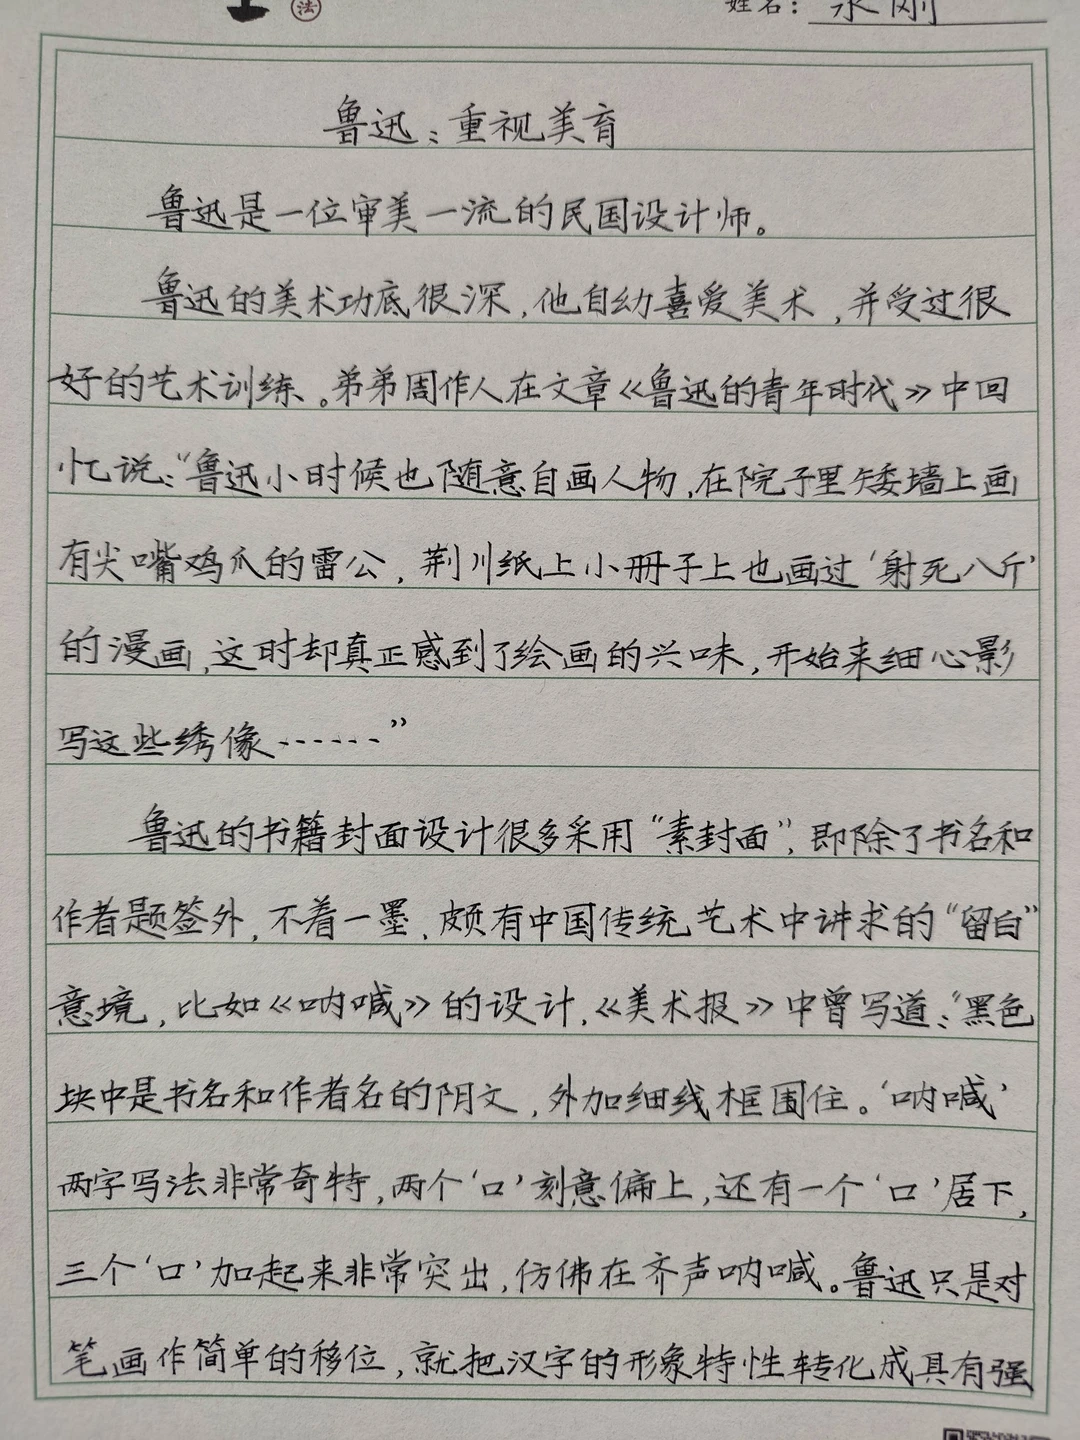 法
姓名：永刚
鲁迅：重视美育
鲁迅是一位审美一流的民国设计师。
鲁迅的美术功底很深，他自幼喜爱美术，并受过很
好的艺术训练。弟弟周作人在文章《鲁迅的青年时代》中回
忆说：“鲁迅小时候也随意自画人物，在院子里矮墙上画
有尖嘴鸡爪的雷公，荆川纸上小册子上也画过‘射死八斤’
的漫画，这时却真正感到了绘画的兴味，开始来细心影
写这些绣像……”
鲁迅的书籍封面设计很多采用“素封面”，即除了书名和
作者题签外，不着一墨，颇有中国传统艺术中讲求的“留白”
意境，比如《呐喊》的设计，《美术报》中曾写道：“黑色
块中是书名和作者名的阴文，外加细线框围住。‘呐喊’
两字写法非常奇特，两个‘口’刻意偏上，还有一个‘口’居下，
三个‘口’加起来非常突出，仿佛在齐声呐喊。鲁迅只是对
笔画作简单的移位，就把汉字的形象特性转化成具有强